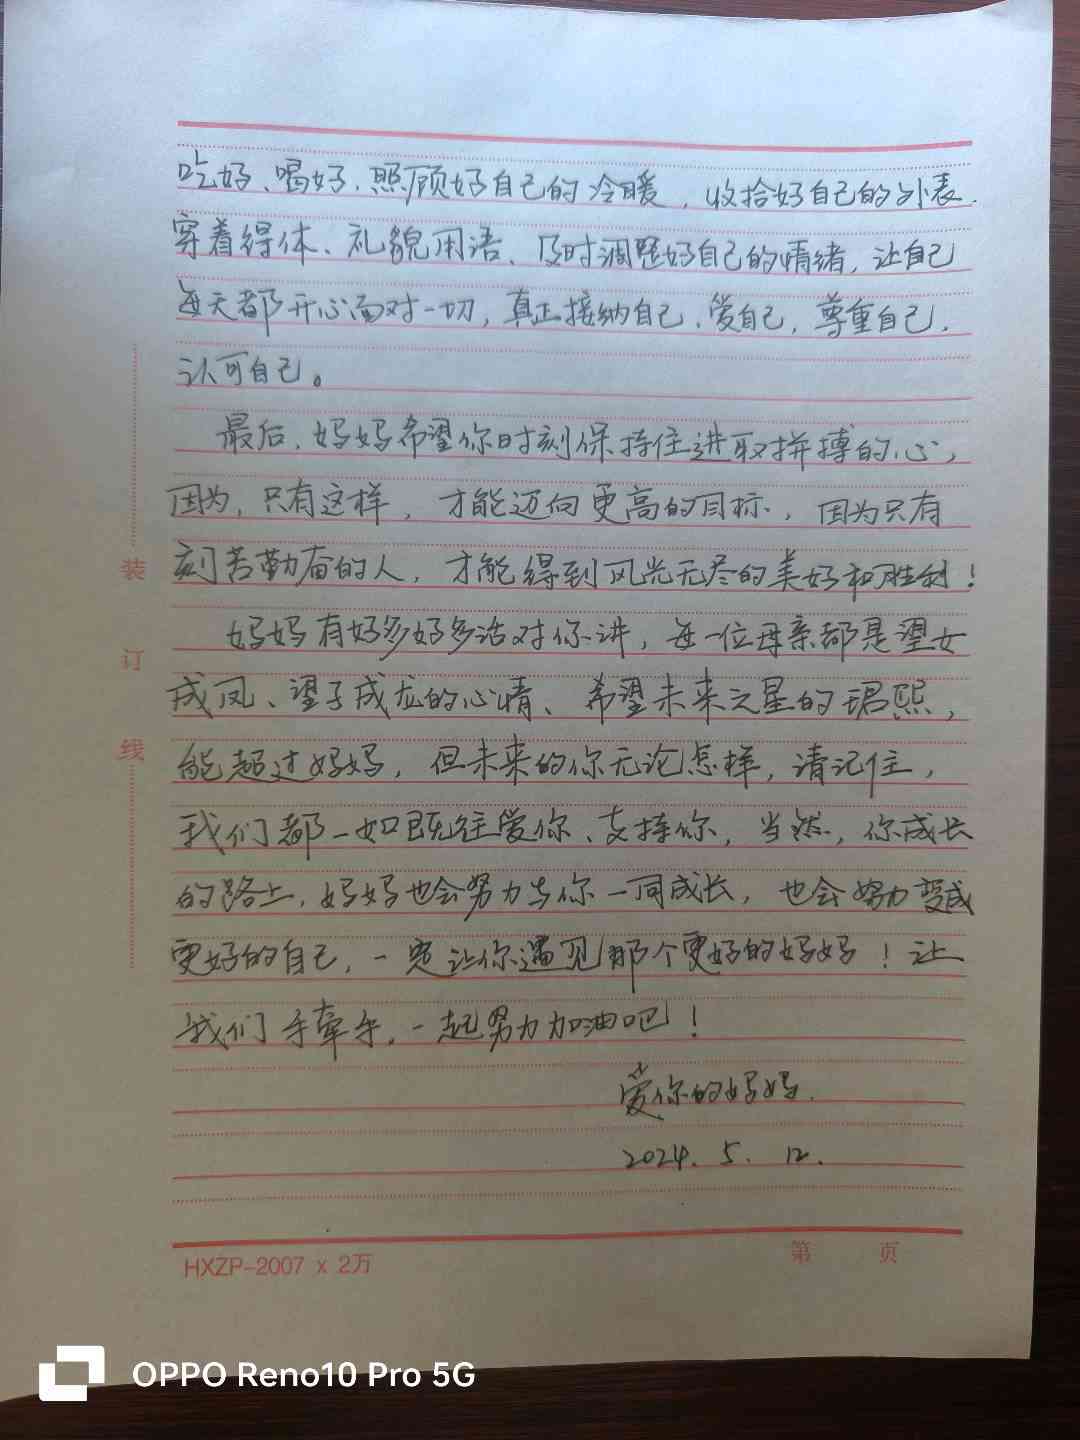 吃好、喝好、照顾好自己的冷暖，收拾好自己的外表，
穿着得体、礼貌用语、及时调整好自己的情绪，让自己
每天都开心面对一切，真正接纳自己、爱自己，尊重自己，
认可自己。
最后，妈妈希望你时刻保持住进取拼搏的心，
因为，只有这样，才能迈向更高的目标，因为只有
刻苦勤奋的人，才能得到风光无尽的美好和胜利！
妈妈有好多好多话对你讲，每一位母亲都是望女
成凤、望子成龙的心情、希望未来之星的珺熙，
能超过妈妈，但未来的你无论怎样，请记住，
我们都一如既往爱你、支持你，当然，你成长
的路上，妈妈也会努力与你一同成长，也会努力变成
更好的自己，一定让你遇见那个更好的妈妈！让
我们手牵手，一起努力加油吧！
爱你的妈妈.
2024. 5. 12.
装
订
线
HXZP-2007 x 2万
第 页
OPPO Reno10 Pro 5G